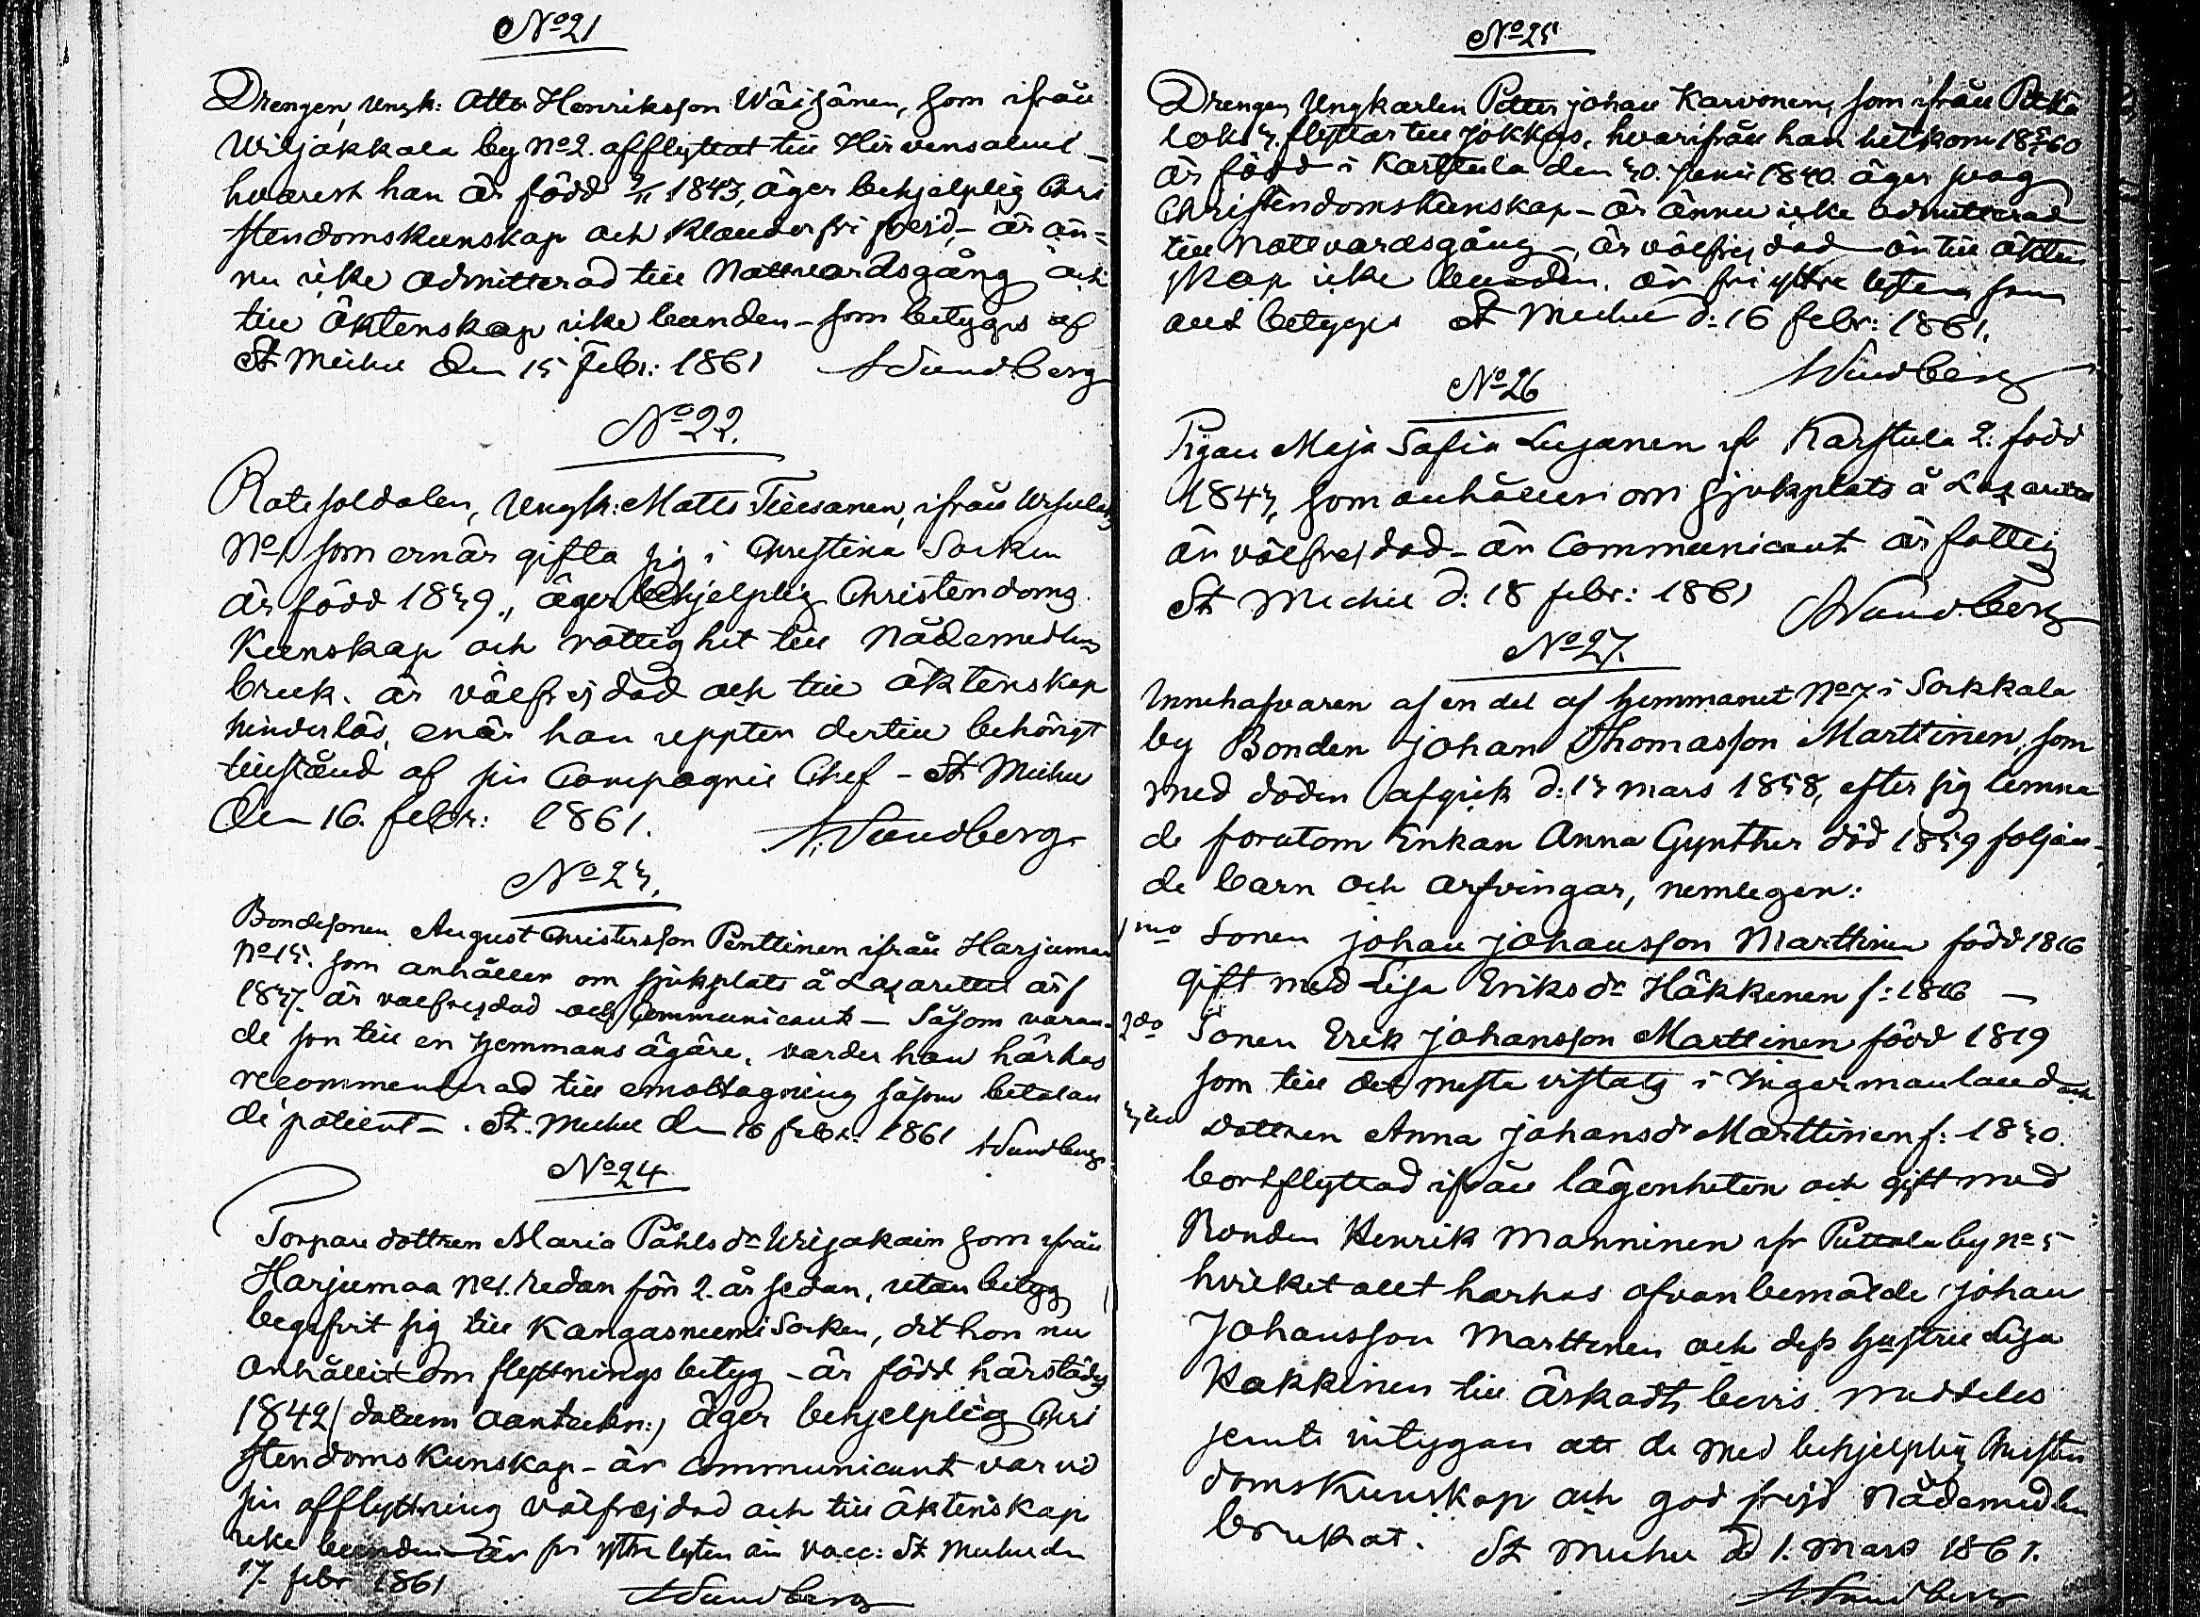 No 21
Drengen, Ungk: Otto Henriksson Wäisänen, som ifrån
Wiljakkala by No 2. afflyttat till Hirvensalmi –
hvarest han är född 9/11 1843, äger behjelplig Chri
stendomskunskap och klanderfri frejd, – är än=
nu icke admitterad till Nattvardsgång och
till äktenskap icke bunden – som betygas af
St Michel den 15 Febr: 1861 A Sundberg
No 22.
Rotesoldaten, Ungk: Matts Tiusanen, ifrån
No 1. som ernär gifta sig i Christina Socken
är född 1839., äger behjelplig Christendoms
Kunskap och rättighet till Nådemedlens
bruk. är välfrejdad och till äktenskap
hinderlös, enär han uppter dertill behörigt
tillstånd af sin Compagnie Chef – St Michel
den 16. febr: 1861. A. Sundberg
No 23.
Bondesonen August Christersson Penttinen ifrån Harjumaa
No 15. som anhåller om sjukplats å Lazarettet är f
1837. är välfrejdad och Communicant – Såsom varan-
de son till en hemmans ägare, varder han härhos
recommenderad till emottagning såsom betalan
de patient – . St. Michel den 16 febr: 1861 A Sundberg
No 24
Torpare dottren Maria Påhls dr Wiljakain som ifrån
Harjumaa No 1. redan för 2. år sedan, utan betyg
begifvit sig till Kangasniemi Socken, dit hon nu
anhållit om flyttnings betyg – är född härstädes
1842 (datum aanteckn:) äger behjelplig Chri
stendoms Kunskap – är Communicant var vid
sin afflyttning välfrejdad och till äktenskap
icke bunden – är fri yttre lyten än vacc: St Michel den
17. febr 1861 A Sundberg
No 25
Drengen, Ungkarlen Petter Johan Karvonen, som ifrån
3. flyttar till Jokkas, hvarifrån han hitkom 1860
är född i Karttula den 30. Junii 1840. äger svag
Christendomskunskap – är ännu icke admitterad
till Nattvardsgång –, är välfrejdad – är till äkten
skap icke bunden. är fri yttre lyten som
allt betygas St Michel d: 16 febr: 1861.
A Sundberg
No 26
Pigan Maja Safia Lujanen ifr Karstula 2: född
1843, som anhåller om sjukplats å Lazarettet
är välfrejdad – är Communicant är fattig
St Michel d: 18 febr: 1861 A Sundberg
No 27.
Innehafvaren af en del af hemmanet No 7 i Sokkala
by Bonden Johan Thomasson Marttinen, som
med döden afgick d: 13 mars 1858, efter sig lemna
de förutom Enkan Anna Gynther död 1859 följan-
de barn och arfvingar, nemligen:
1mo Sonen Johan Johansson Marttinen född 1816
gift med Lisa Eriks dr Häkkinen f: 1816 –
2do Sonen Erik Johansson Marttinen född 1819
som till det mesta vistats i Ingermanland och
3tio Dottren Anna Johansdr Marttinen f: 1830.
bortflyttad ifrån lägenheten och gift med
Bonden Henrik Manninen ifr Puttola by no 5
hvilket allt härhos ofvanbemälde Johan
Johansson Marttinen och dess hustru Lisa
Häkkinen till äskadt bevis meddeles
jemte intygan att de med behjelplig Christen
domskunskap och god frejd Nådemedlen
brukat. St Michel d 1. Mars 1861.
A Sundberg